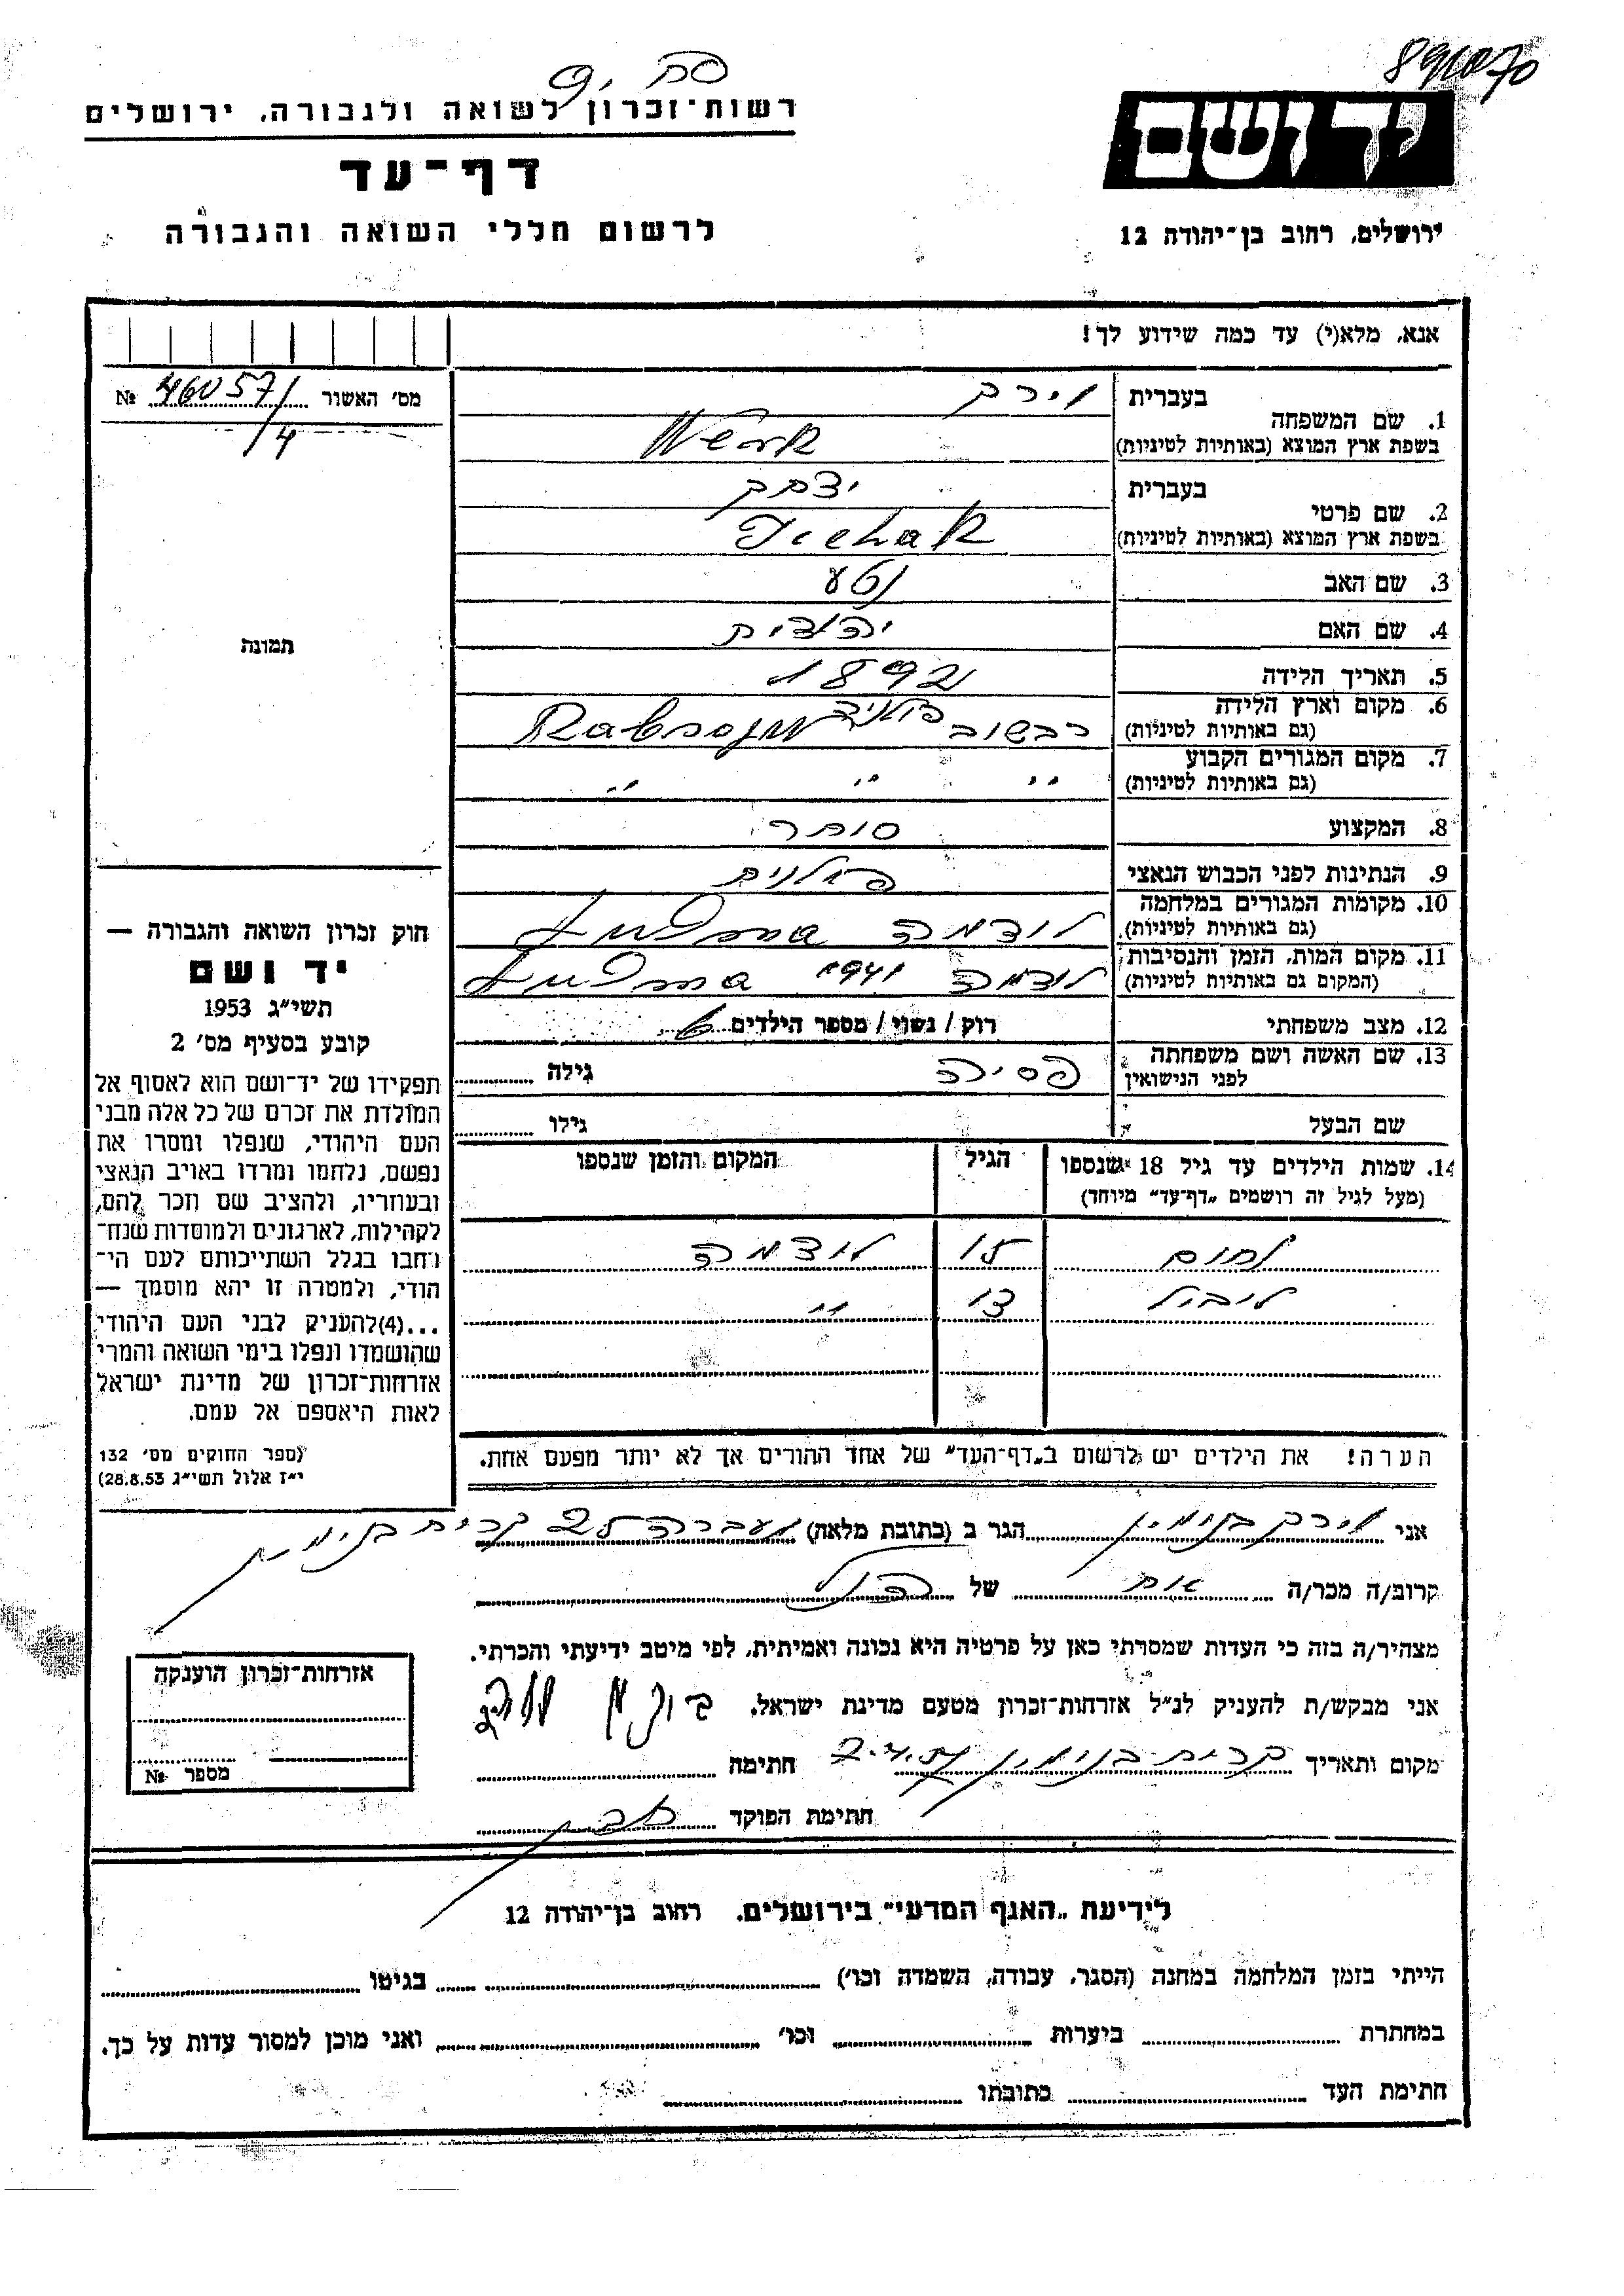 891070
רשות־זכרון לשואה ולגבורה, ירושלים
יד ושם
דף־עד
ירושלים, רחוב בן־יהודה 12
לרשום חללי השואה והגבורה
אנא, מלא(י) עד כמה שידוע לך!
מס׳ האשור № 46057/4
1. שם המשפחה בעברית וירק
בשפת ארץ המוצא (באותיות לטיניות) Werk
2. שם פרטי בעברית יצחק
בשפת ארץ המוצא (באותיות לטיניות) Icchak
3. שם האב נטע
4. שם האם יהודית
תמונה
5. תאריך הלידה 1892
6. מקום וארץ הלידה
(גם באותיות לטיניות) רבשוב פולניה
7. מקום המגורים הקבוע
(גם באותיות לטיניות) " " "
8. המקצוע סוחר
9. הנתינות לפני הכבוש הנאצי פולנית
10. מקומות המגורים במלחמה
(גם באותיות לטיניות) לודמה
11. מקום המות, הזמן והנסיבות
(המקום גם באותיות לטיניות) לודמה 1941
12. מצב משפחתי רוק / נשוי / מספר הילדים 6
13. שם האשה ושם משפחתה
לפני הנישואין פסיה גילה
שם הבעל גילו
14. שמות הילדים עד גיל 18 שנספו הגיל המקום והזמן שנספו
(מעל לגיל זה רושמים „דף־עד״ מיוחד)
נחום 15 לודמה
ליבל 13 "
הערה! את הילדים יש לרשום ב„דף־העד״ של אחד ההורים אך לא יותר מפעם אחת.
חוק זכרון השואה והגבורה —
יד ושם
תשי״ג 1953
קובע בסעיף מס׳ 2
תפקידו של יד־ושם הוא לאסוף אל
המולדת את זכרם של כל אלה מבני
העם היהודי, שנפלו ומסרו את
נפשם, נלחמו ומרדו באויב הנאצי
ובעוזריו, ולהציב שם וזכר להם,
לקהילות, לארגונים ולמוסדות שנח־
רבו בגלל השתייכותם לעם הי־
הודי, ולמטרה זו יהא מוסמך —
...(4)להעניק לבני העם היהודי
שהושמדו ונפלו בימי השואה והמרי
אזרחות־זכרון של מדינת ישראל
לאות היאספם אל עמם.
(ספר החוקים מס׳ 132
י״ז אלול תשי״ג 28.8.53)
אני וירק בנימין הגר ב (כתובת מלאה) מעברה קרית בנימין
קרוב/ה מכר/ה אח של הנ״ל
מצהיר/ה בזה כי העדות שמסרתי כאן על פרטיה היא נכונה ואמיתית, לפי מיטב ידיעתי והכרתי.
אני מבקש/ת להעניק לנ״ל אזרחות־זכרון מטעם מדינת ישראל.
מקום ותאריך קרית בנימין חתימה
חתימת הפוקד
אזרחות־זכרון הוענקה
מספר №
לידיעת „האגף המדעי״ בירושלים, רחוב בן־יהודה 12
הייתי בזמן המלחמה במחנה (הסגר, עבודה, השמדה וכו׳) בגיטו
במחתרת ביערות וכו׳ ואני מוכן למסור עדות על כך.
חתימת העד כתובתו